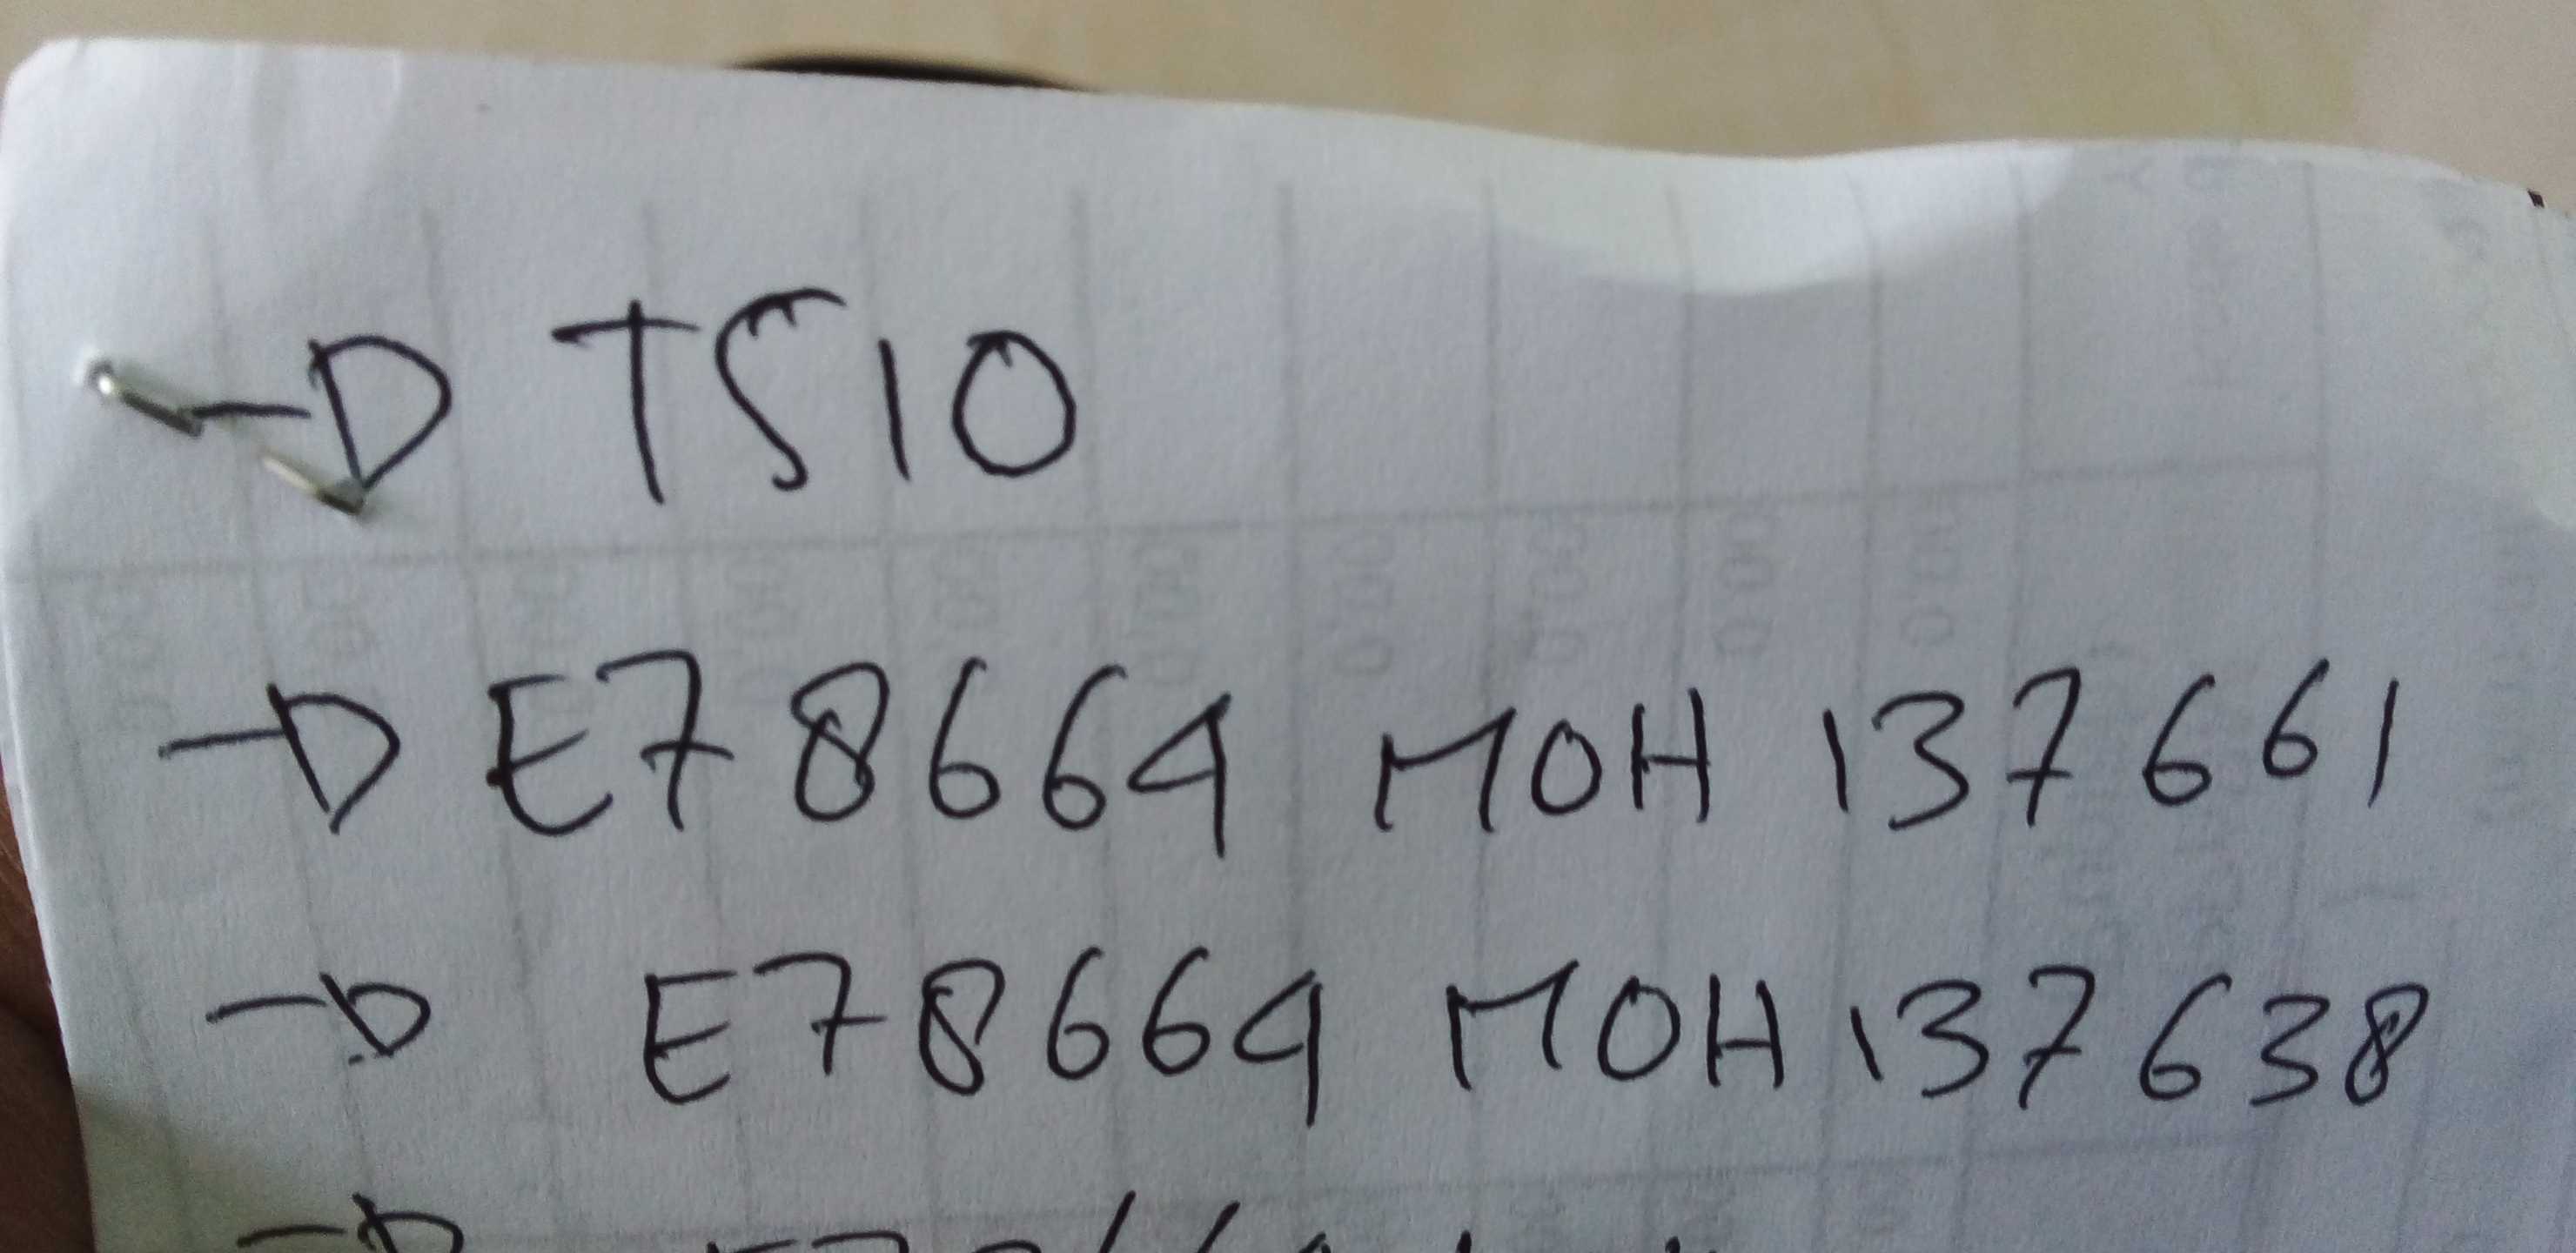 → TS10
→ E78664 MOH 137661
→ E78664 MOH 137638